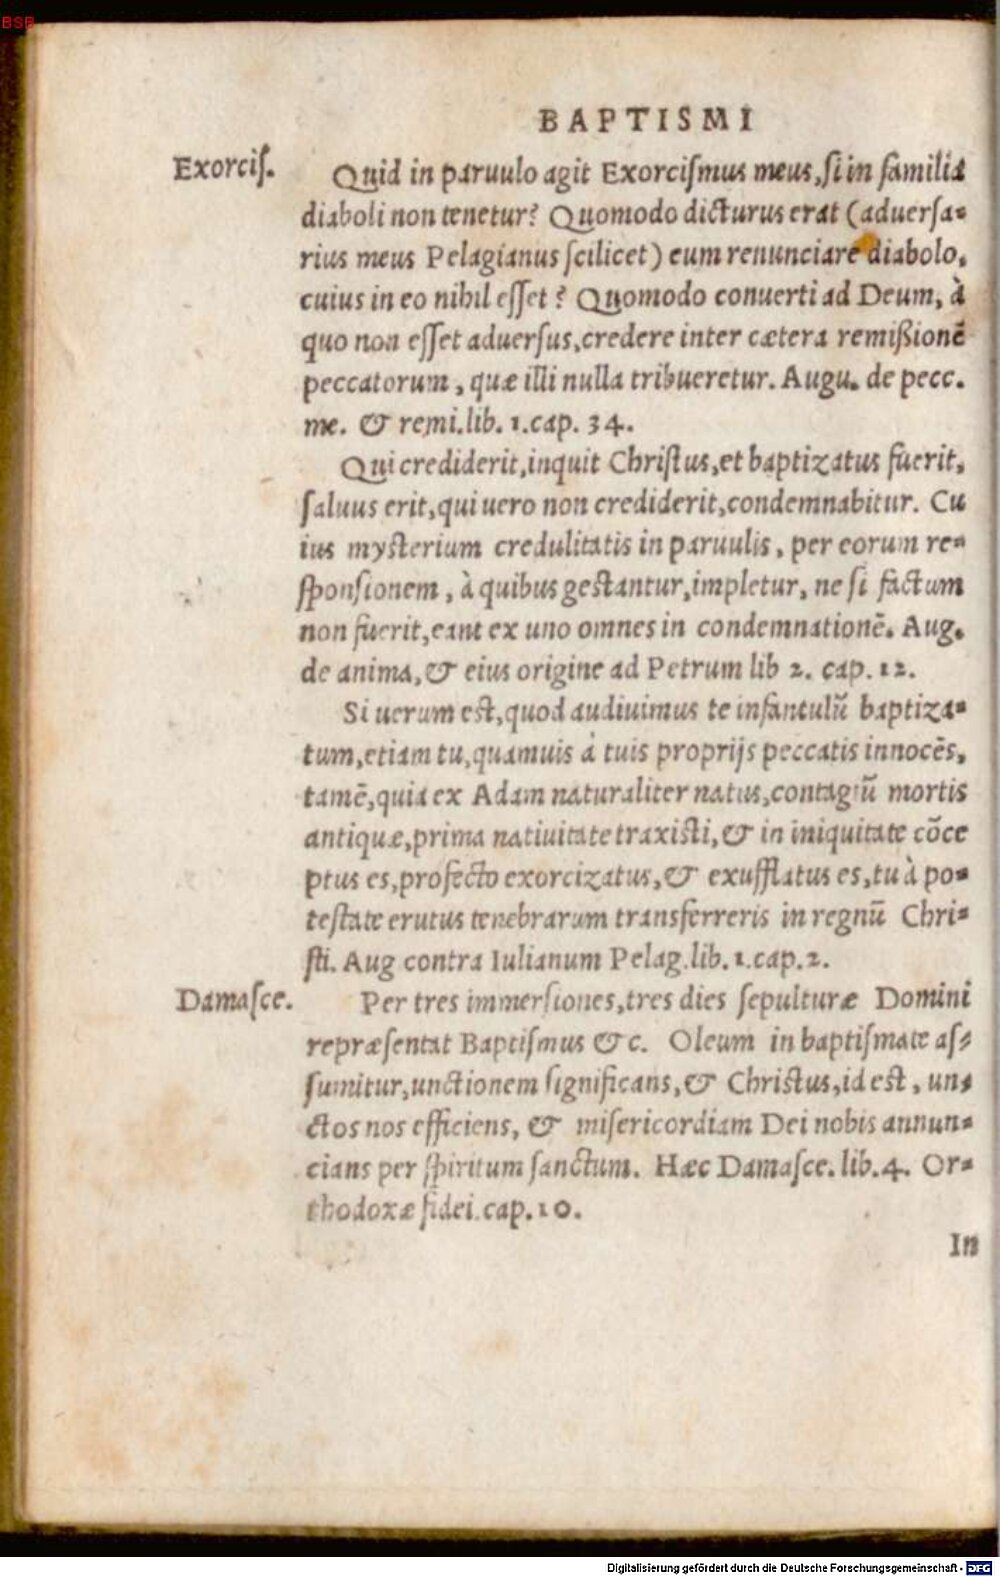 BSB
BAPTISMI
Exorciſ.
Quid in paruulo agit Exorciſmus meus, ſi in familia
diaboli non tenetur? Quomodo dicturus erat (aduerſa-
rius meus Pelagianus ſcilicet) eum renunciare diabolo,
cuius in eo nihil eſſet? Quomodo conuerti ad Deum, à
quo non eſſet aduerſus, credere inter cætera remißionẽ
peccatorum, quæ illi nulla tribueretur. Augu. de pecc.
me. & remi. lib. 1. cap. 34.
Qui crediderit, inquit Chriſtus, et baptizatus fuerit,
ſaluus erit, qui uero non crediderit, condemnabitur. Cu
ius myſterium credulitatis in paruulis, per eorum re-
ſponſionem, à quibus geſtantur, impletur, ne ſi factum
non fuerit, eant ex uno omnes in condemnationẽ. Aug.
de anima, & eius origine ad Petrum lib 2. cap. 12.
Si uerum eſt, quod audiuimus te infantulũ baptiza-
tum, etiam tu, quamuis à tuis proprijs peccatis innocẽs,
tamẽ, quia ex Adam naturaliter natus, contagiũ mortis
antiquæ, prima natiuitate traxiſti, & in iniquitate cõce
ptus es, profecto exorcizatus, & exufflatus es, tu à po-
teſtate erutus tenebrarum transferreris in regnũ Chri-
ſti. Aug contra Iulianum Pelag. lib. 1. cap. 2.
Damaſce.
Per tres immerſiones, tres dies ſepulturæ Domini
repræſentat Baptiſmus &c. Oleum in baptiſmate aſ-
ſumitur, unctionem ſignificans, & Chriſtus, id eſt, un-
ctos nos efficiens, & miſericordiam Dei nobis annun-
cians per ſpiritum ſanctum. Hæc Damaſce. lib. 4. Or-
thodoxæ fidei. cap. 10.
In
Digitalisierung gefördert durch die Deutsche Forschungsgemeinschaft - DFG